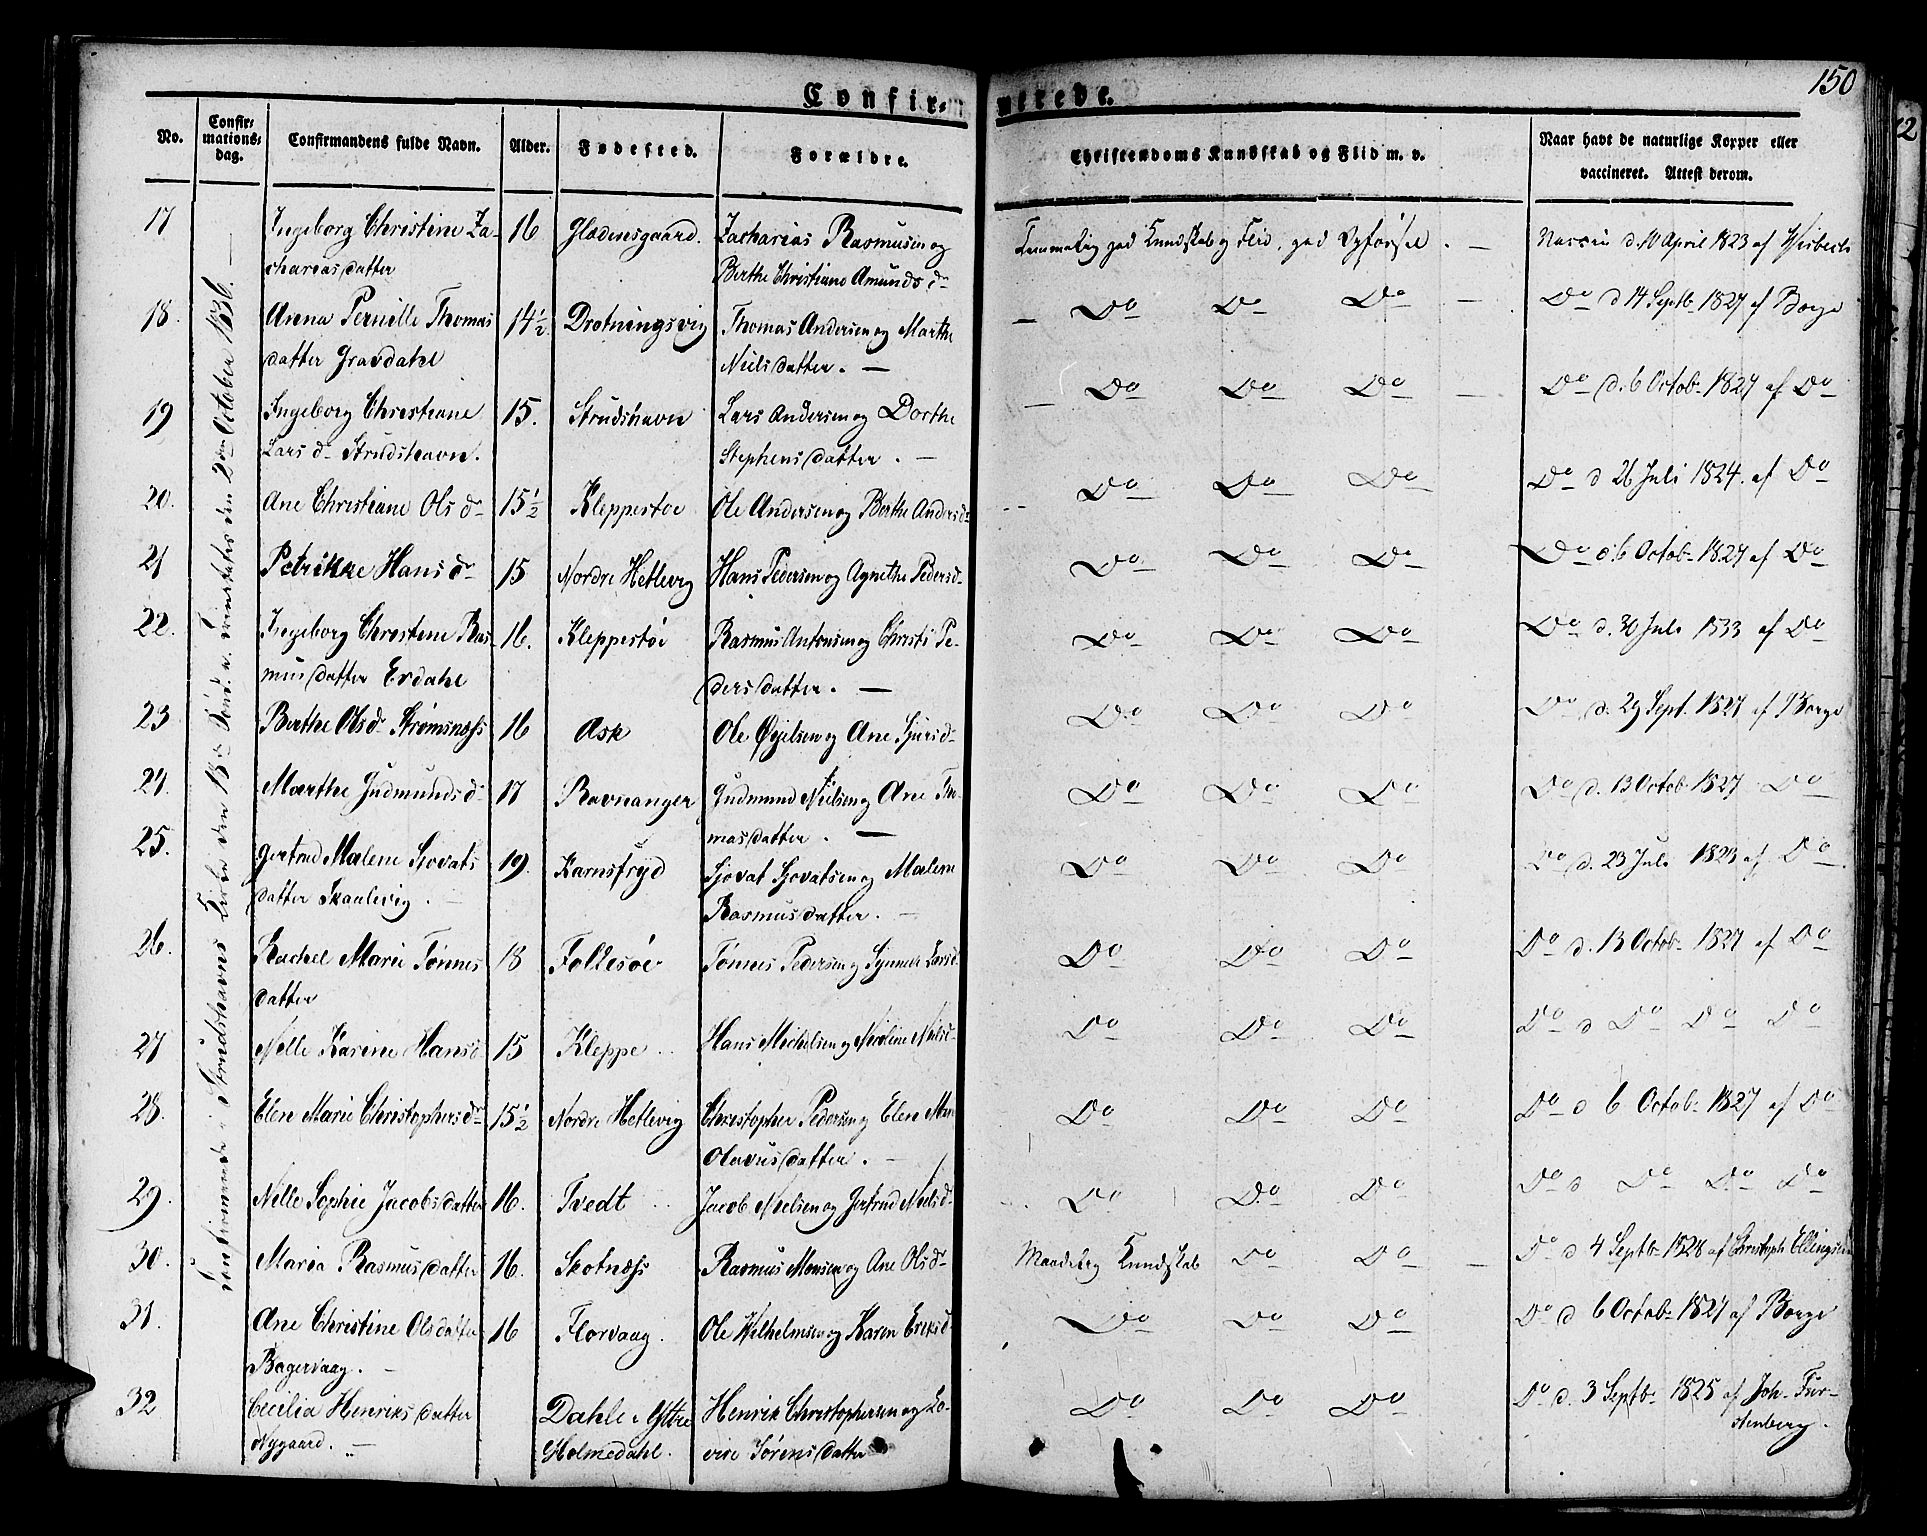 150
Confirmerede.
No.
Confirmationsdag.
Confirmandens fulde Navn.
Alder.
Fødested.
Forældre.
Christendoms Kundskab og Flid m. v.
Naar havt de naturlige Kopper eller
vaccineret. Attest derom.
Confirmerede i Strudshavns Kirke den 18de Sønd. e. Trinitatis den 2den October 1836.
17 Ingeborg Christine Za- 16 Gladinesgaard. Zacharias Rasmusen og
chariasdatter Berthe Christiane Amunds d-
Temmelig god Kundskab og Flid, god Opførsel. — Vaccin d. 10 April 1823 af Wisbech
18. Anna Pernille Thomas 14½ Drotningsvig Thomas Andersen og Marthe
datter Gravdahl Nielsdatter. —
— Do Do Do — Do d 14 Septb- 1827 af Børge
19 Ingeborg Christiane 15. Strudshavn Lars Andersen og Dorthe
Lars d- Strudshavn. Stephensdatter. —
— Do Do Do — Do d. 6 Octob- 1827 af Do
20. Ane Christiane Ols d- 15½ Kleppestøe Ole Andersen og Berthe Andersd-
Do Do Do Do d 26 Juli 1824. af Do
21 Petrikke Hans d- 15 Nordre Hetlevig Hans Pedersen og Agnethe Pedersd-
Do Do Do Do d. 6 Octob- 1827 af Do
22. Ingeborg Christine Ras- 16. Kleppestøe Rasmus Antonsen og Christi Pe-
musdatter Erdahl dersdatter. —
Do Do Do Do d. 30 Juli 1833 af Do
23 Berthe Olsd- Strømsnæss 16 Ask Ole Øyelsen og Ane Sjursd-
Do Do Do Do d. 29 Sept. 1827 af Børge
24. Marthe Gudmundsd- 17 Ravnanger Gudmund Nielsen og Ane To-
masdatter. —
Do Do Do Do d. 13 Octob- 1827 Do
25. Gertrud Malene Sjovats 19. Karnsfryd Sjovat Sjovatsen og Malene
datter Skaalevig. Rasmusdatter. —
Do Do Do Do d. 23 Juli 1823 af Do
26. Rachel Marie Tønnes 18 Follesøe Tønnes Pedersen og Synneve Larsd-
datter
Do Do Do Do d. 13 Octob- 1827 af Do
27 Nelle Karine Hansd 15 Kleppe Hans Michelsen og Nicoline Nielsd-
Do Do Do Do d Do Do Do
28. Elen Marie Christophersd- 15½ Nordre Hetlevig Christopher Pedersen og Elen Marie
Olavusdatter. —
Do Do Do Do d 6 Octob- 1827 af Do
29. Nelle Sophie Jacobsdatter 16. Tvedt Jacob Nielsen og Gertrud Nielsd-
Do Do Do Do d Do Do Do
30. Maria Rasmusdatter 16. Skotnæss Rasmus Monsen og Ane Olsd-
Maadelig Kundskab Do Do — Do d 4 Septb- 1828 af Christoph Ellingsen
31. Ane Christine Olsdatter 16 Florvaag. Ole Wilhelmsen og Karen Eriksd-
Bagervaag. —
Do Do Do Do d 6 Octob- 1827 af Børge
32 Cecilia Henriksdatter Dahle i Yttre Henrik Christophersen og Lo-
Nygaard. — Holmedahl. vise Sørensdatter
Do Do Do Do d. 3 Septb- 1825 af Joh. Fur-
stenberg.